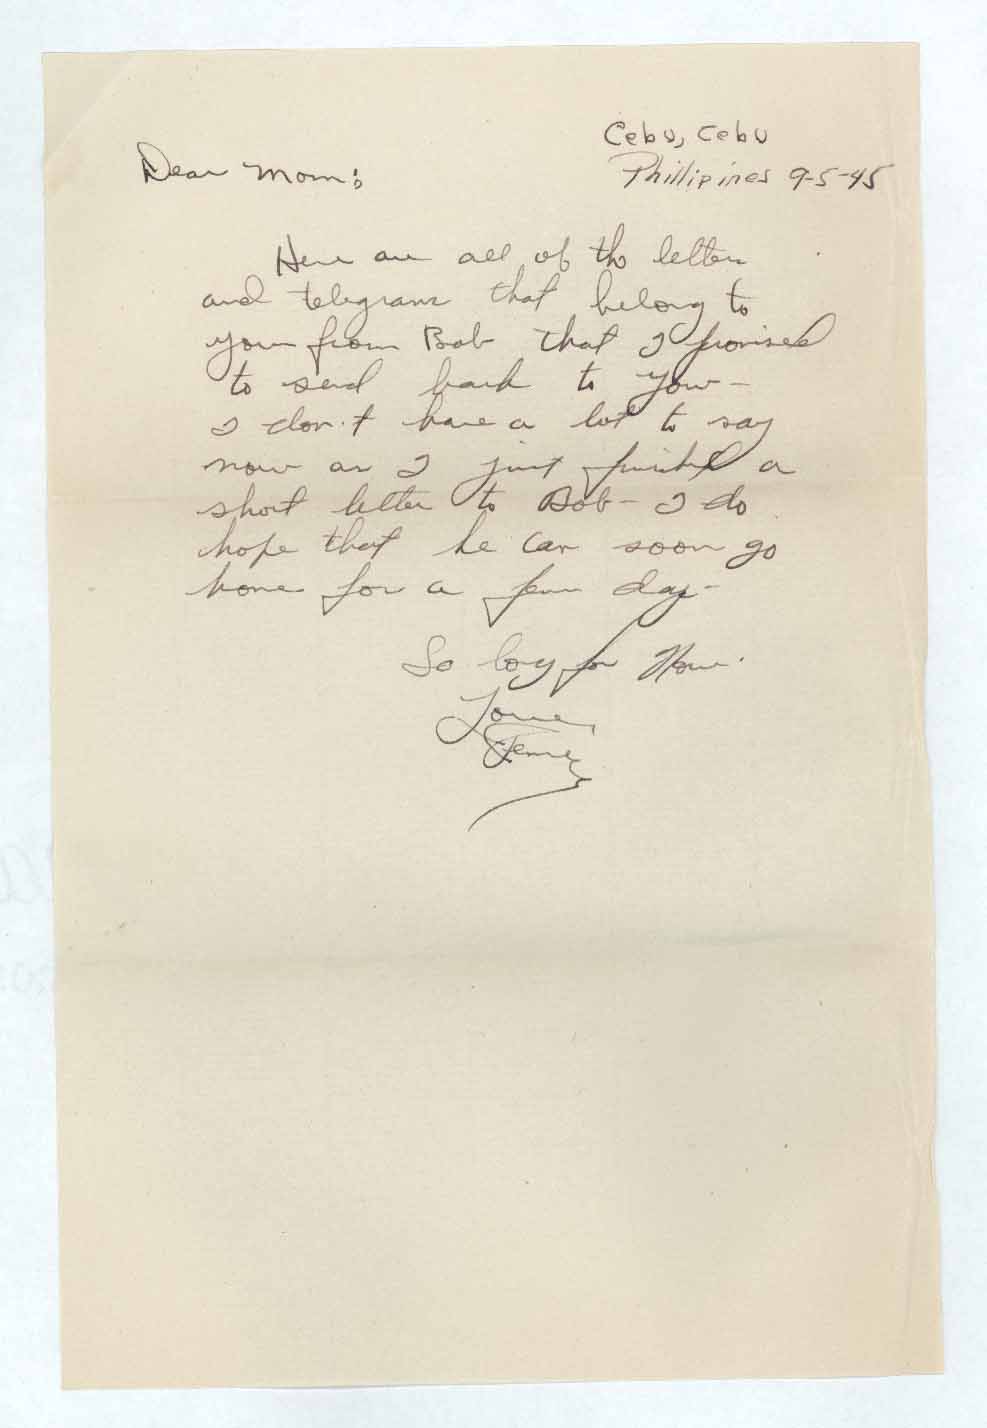 Cebu, Cebu
Dear Mom:
Phillipines 9-5-45
Here are all of the letters
and telegrams that belong to
you from Bob that I promised
to send back to you-
I don't have a lot to say
now as I just finished a
short letter to Bob- I do
hope that he can soon go
home for a few days-
So long for Now.
Love,